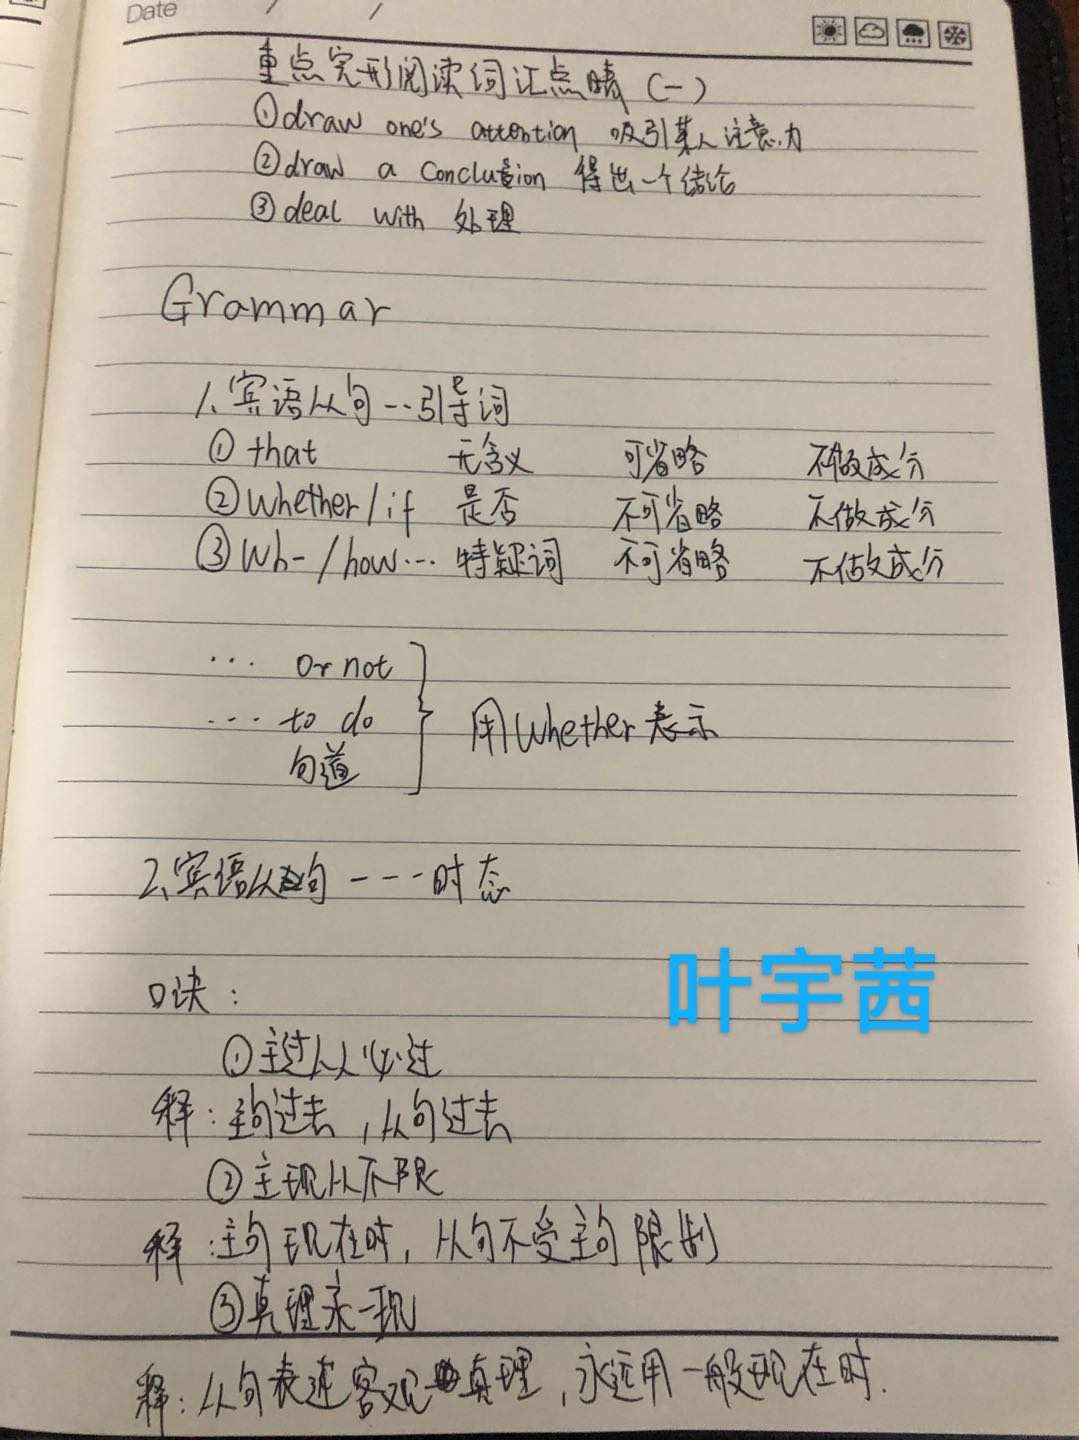 Date / /
重点完形阅读词汇点睛（一）
①draw one's attention 吸引某人注意力
②draw a conclusion 得出一个结论
③deal with 处理
Grammar
1、宾语从句--引导词
①that 无含义 可省略 不做成分
②whether/if 是否 不可省略 不做成分
③wh-/how... 特疑词 不可省略 不做成分
... or not
... to do
句首
用whether表示
2、宾语从句----时态
叶宇茜
口诀：
①主过从必过
释：主句过去，从句过去
②主现从不限
释：主句现在时，从句不受主句限制
③真理永一现
释：从句表述客观真理，永远用一般现在时.